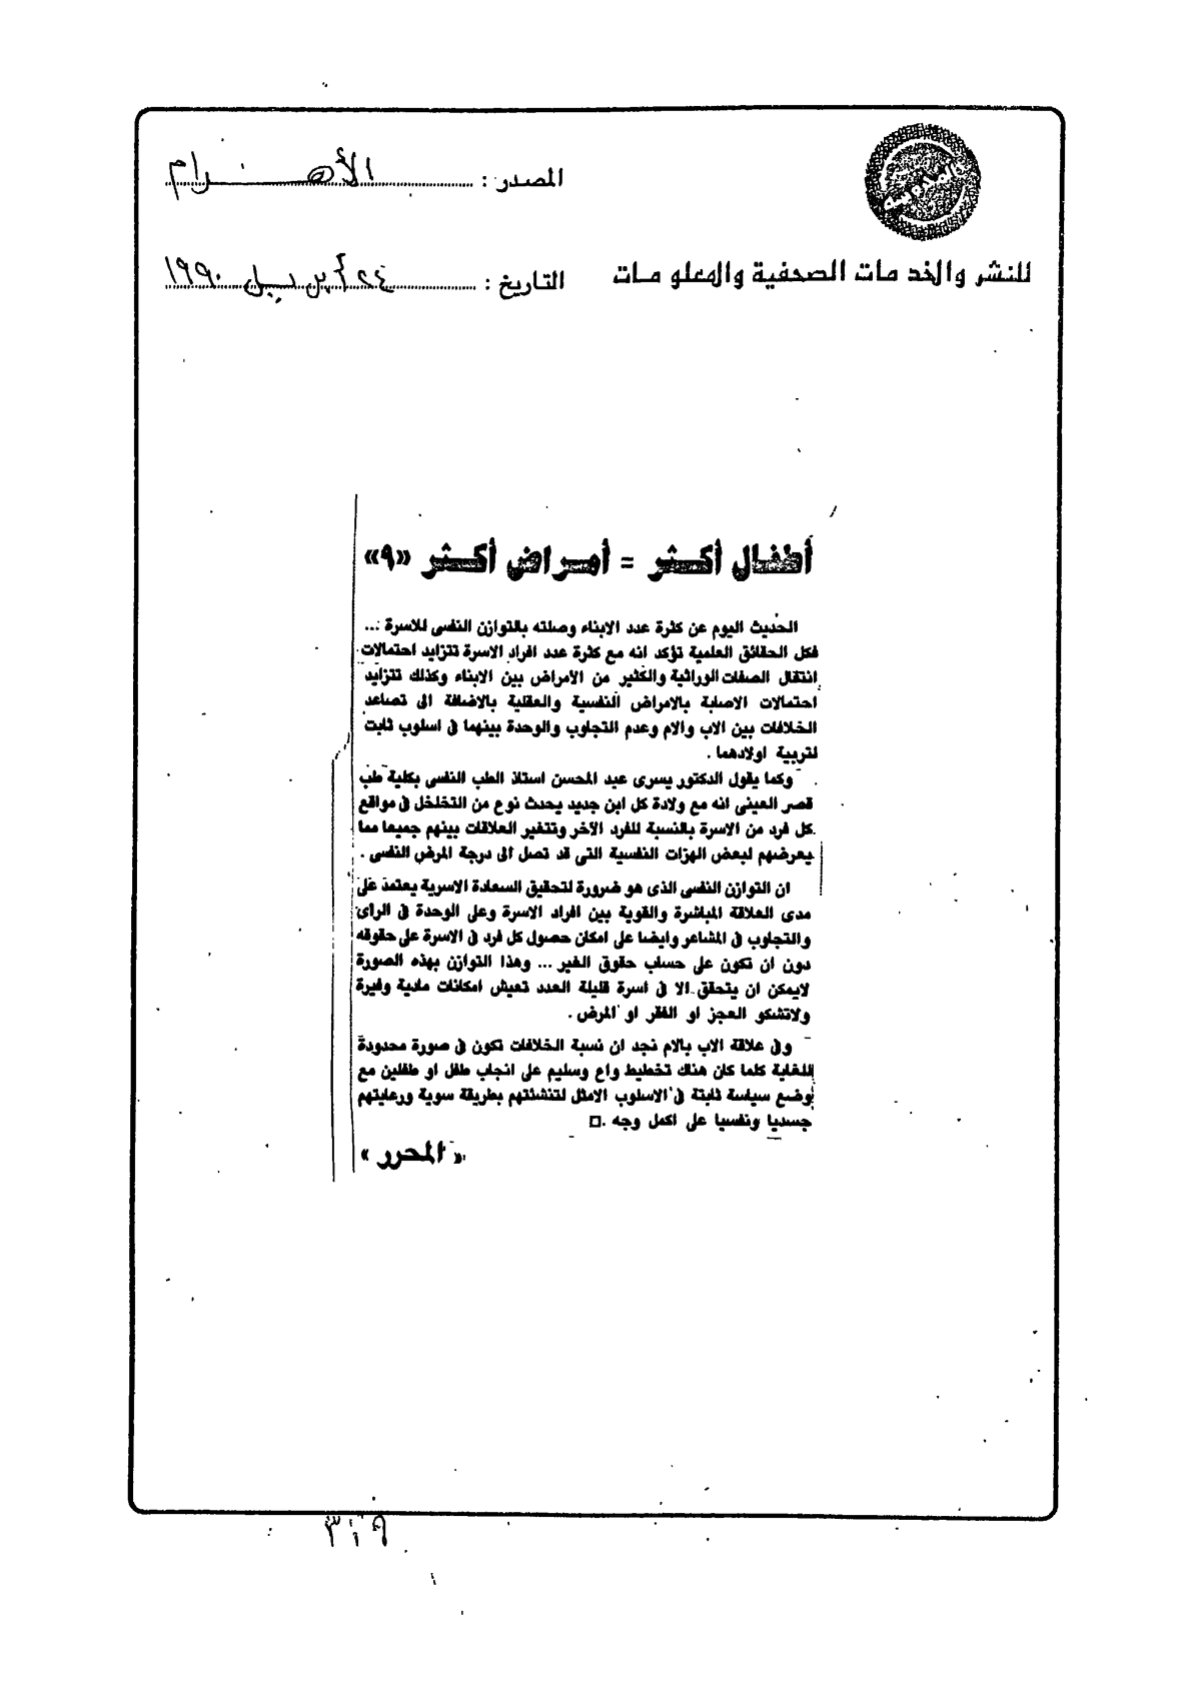 المصدر : الأهـــرام
للنشر والخدمات الصحفية والمعلومات
التاريخ : ٢٤ أبريل ١٩٩٠
أطفال أكثر = أمراض أكثر «٩»
الحديث اليوم عن كثرة عدد الابناء وصلته بالتوازن النفسى للاسرة ...
فكل الحقائق العلمية تؤكد انه مع كثرة عدد افراد الاسرة تتزايد احتمالات
انتقال الصفات الوراثية والكثير من الامراض بين الابناء وكذلك تتزايد
احتمالات الاصابة بالامراض النفسية والعقلية بالاضافة الى تصاعد
الخلافات بين الاب والام وعدم التجاوب والوحدة بينهما فى اسلوب ثابت
لتربية اولادهما .
وكما يقول الدكتور يسرى عبد المحسن استاذ الطب النفسى بكلية طب
قصر العينى انه مع ولادة كل ابن جديد يحدث نوع من التخلخل فى مواقع
كل فرد من الاسرة بالنسبة للفرد الآخر وتتغير العلاقات بينهم جميعا مما
يعرضهم لبعض الهزات النفسية التى قد تصل الى درجة المرض النفسى .
ان التوازن النفسى الذى هو ضرورة لتحقيق السعادة الاسرية يعتمد على
مدى العلاقة المباشرة والقوية بين افراد الاسرة وعلى الوحدة فى الراى
والتجاوب فى المشاعر وايضا على امكان حصول كل فرد فى الاسرة على حقوقه
دون ان تكون على حساب حقوق الغير ... وهذا التوازن بهذه الصورة
لايمكن ان يتحقق الا فى اسرة قليلة العدد تعيش امكانات مادية وفيرة
ولاتشكو العجز او الفقر او المرض .
وفى علاقة الاب بالام نجد ان نسبة الخلافات تكون فى صورة محدودة
للغاية كلما كان هناك تخطيط واع وسليم على انجاب طفل او طفلين مع
وضع سياسة ثابتة فى الاسلوب الامثل لتنشئتهم بطريقة سوية ورعايتهم
جسديا ونفسيا على اكمل وجه . □
« المحرر »